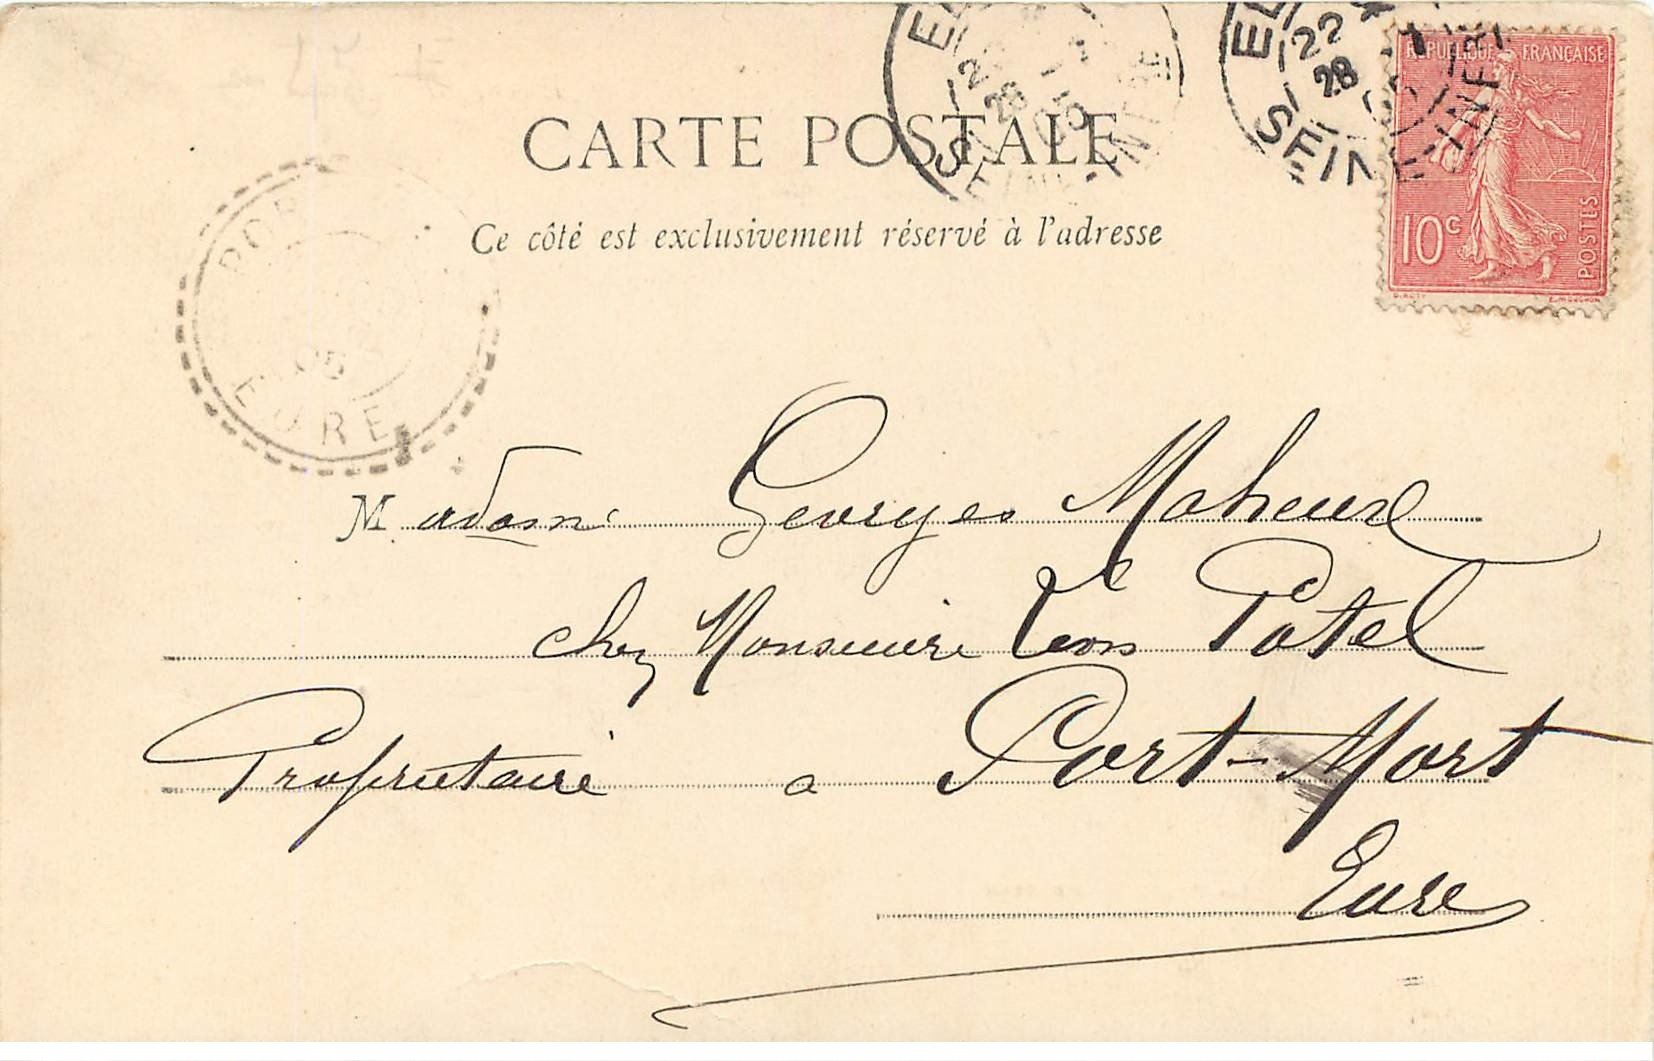 CARTE POSTALE
Ce côté est exclusivement réservé à l'adresse
REPUBLIQUE FRANÇAISE
10c
POSTES
E. MOUCHON
EL
22
28
05
SEINE-INFRE
EL
28
05
SEINE-INFRE
POR
05
EURE
Madame Georges Maheux
chez Monsieur Léon Potel
Propriétaire a Port-Mort
Eure